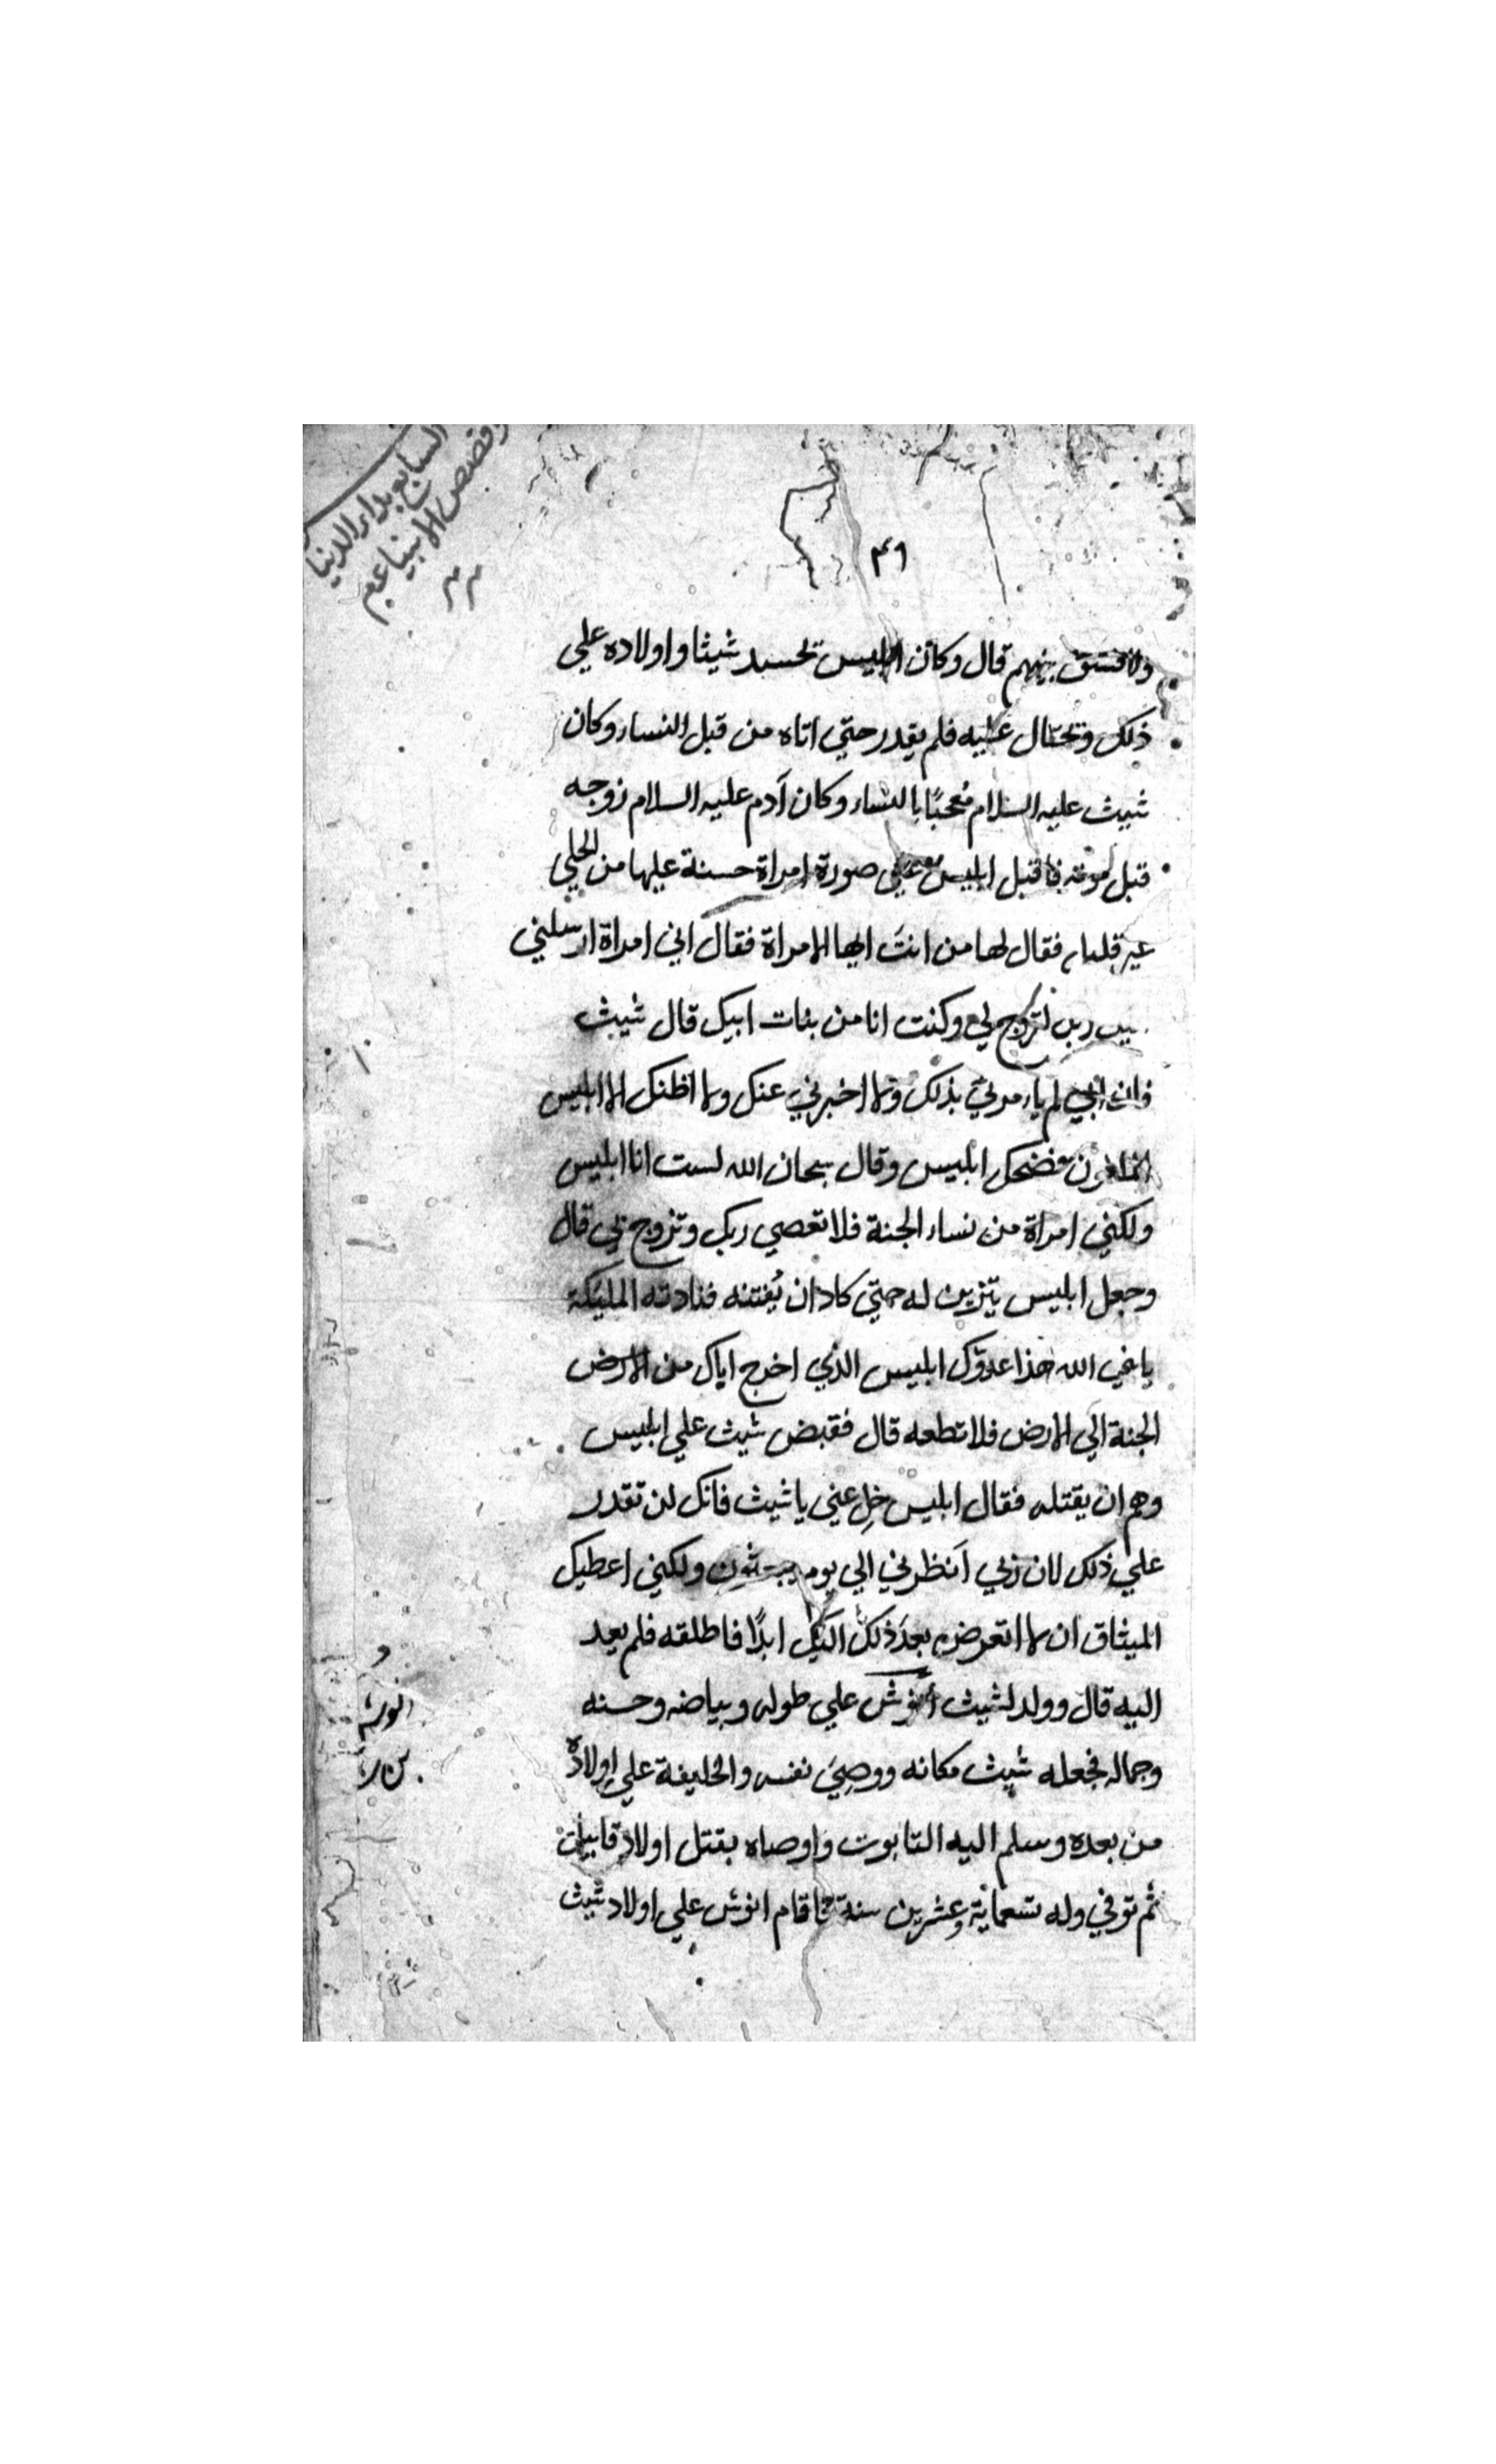 السابع بدار الدنيا
قصص الانبيا عم
٤٦
ولا فسق بينهم قال وكان ابليس تحسد شيثا واولاده علي
ذلك وتحتال عليه فلم يقدر حتي اتاه من قبل النساء وكان
شيث عليه السلام مُعجبًا بالنساء وكان آدم عليه السلام زوجه
قبل موته فاقبل ابليس علي صورة امراة حسنة عليها من الحلي
غير قليل فقال لها من انتَ ايها الامراة فقال اني امراة ارسلني
ربي لتزوج لي وكنت انا من بنات ابيك قال شيث
فان ابي لم يامرني بذلك ولا اخبرني عنك ولا اظنك الا ابليس
الملعون فضحك ابليس وقال سبحان الله لست انا ابليس
ولكني امراة من نساء الجنة فلا تعصي ربك وتزوج بي قال
وجعل ابليس يتزين له حتي كاد ان يُفتنه فنادته المليكة
يا نبي الله هذا عدوّك ابليس الذي اخرج اباك من الارض
الجنة الي الارض فلا تطعه قال فقبض شيث علي ابليس
وهم ان يقتله فقال ابليس خلِ عني يا شيث فانك لن تقدر
علي ذلك لان ربي اَنظرني الي يوم يبعثون ولكني اعطيك
الميثاق ان لا اتعرض بعدَ ذلك اليك ابدًا فاطلقه فلم يعد
اليه قال وولد لشيث أنوش علي طوله وبياضه وحسنه
وجماله فجعله شيث مكانه ووصِيَ نفسه والخليفة علي اولاده
من بعده وسلم اليه التابوت واوصاه بقتل اولاد قابيل
ثم توفي وله تسعماية وعشرين سنة فاقام انوش علي اولاد شيث